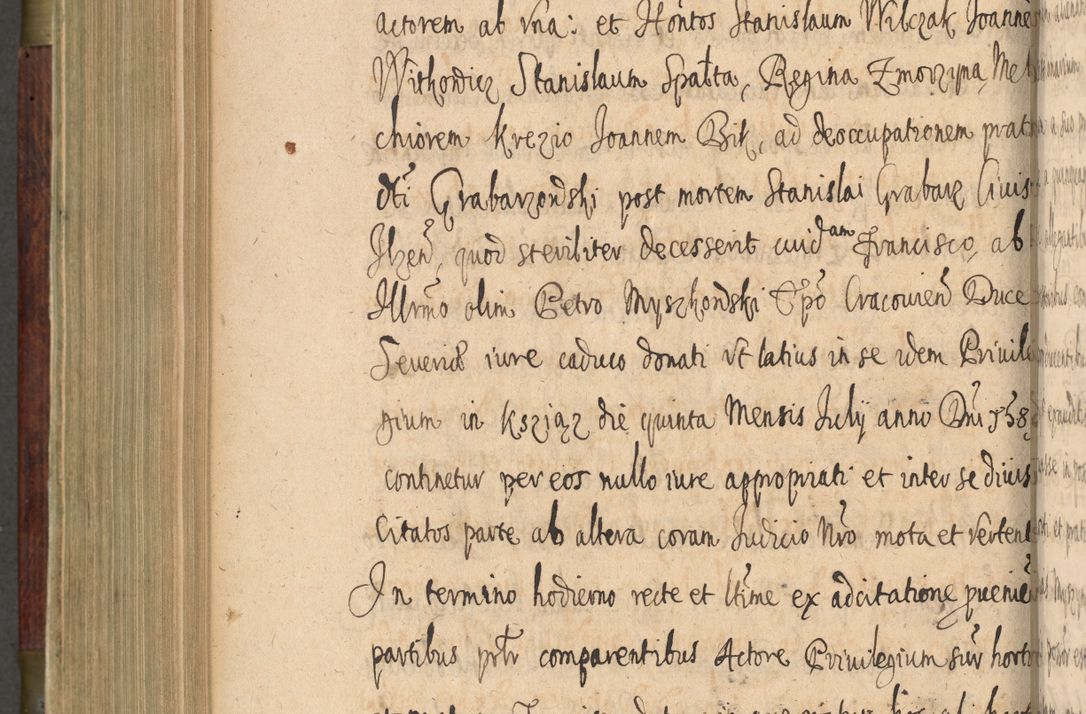 actorem ab vna: et Hontos Stanislaum Wilczak Joanne
Withowicz Stanislaum Spałta, Regina Zmorzyna Mel
chiorem Krezio Joannem Bik, ad deoccupationem prat
dti Grabarzowski post mortem Stanislai Grabarz Ciuis
Ilzen, quod steriliter decesserit cuidam Francisco, ab
Illrmo olim Petro Myszkowski Epo Cracouien Duce
Seuerien iure caduco donati vt latius in se idem Priuile
gium in Ksziąz die quinta Mensis July anno Dni 158
continetur per eos nullo iure appropriati et inter se diuis
Citatos parte ab altera coram Judicio Nro mota et vertent
In termino hodierno recte et ltime ex adcitatione puenie
partibus prtr comparentibus Actore Priuilegium sur horto